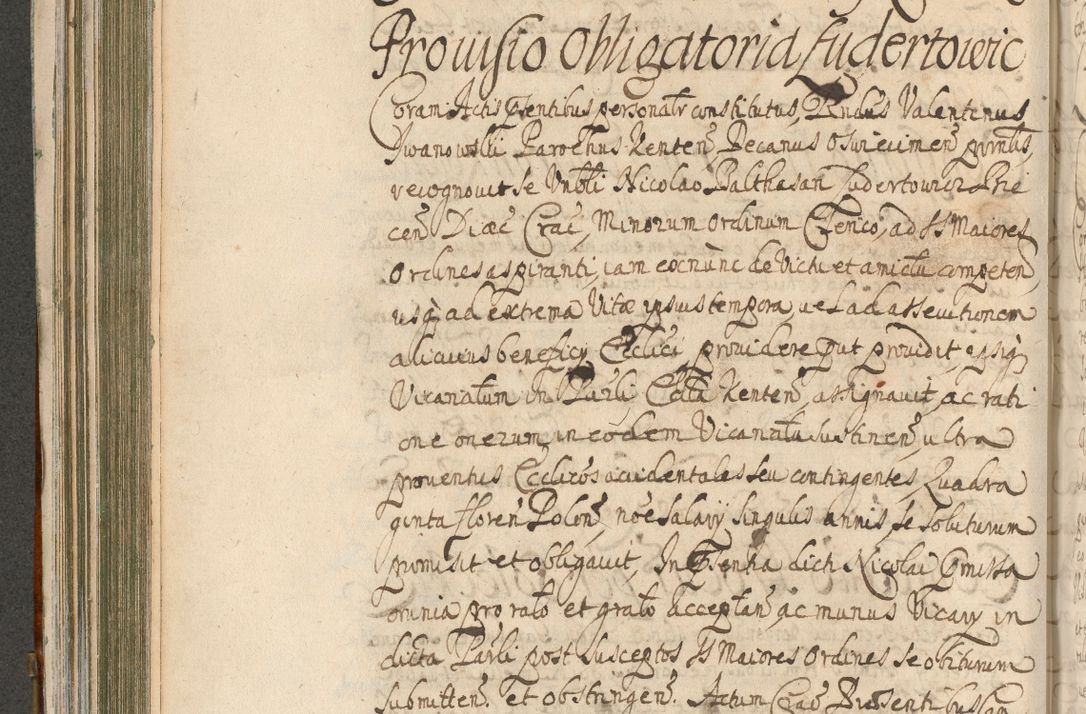 Provisio Obligatoria Ludertowic
Coram Actis pñtibus personalr constitutus, Rndus Valentinus
Iwanowski Parochus Kenten, Decanus Oswiecimen prñtis,
recognovit se Vnbli Nicolao Balthasari Ludertowicz
cen Diæc Crac, Minorum Ordinum Clerico, ad SS Maiores
Ordines aspiranti, iam ex nunc de Victu et amictu competen
usq ad extrema Vitæ ipsius tempora, vel ad assecutionem
alicuius beneficy Ecclici, providere put providit, ipsiq
Vicariatum in Parli Ecclia Kenten, assignavit, ac rati
one onerum, in eodem Vicariatu sustinen, ultra
proventus Ecclicos accidentales seu contingentes, Quadra
ginta floren Polon, noe salary singulis annis, se soluturum
promisit et obligavit, In Psentia dicti Nicolai pmissa
omnia pro rato et grato acceptan ac munus Vicary in
dicta Parli post susceptos SS Maiores Ordines se obiturum
submitten. et obstringen. Actum Crac Præsentibus